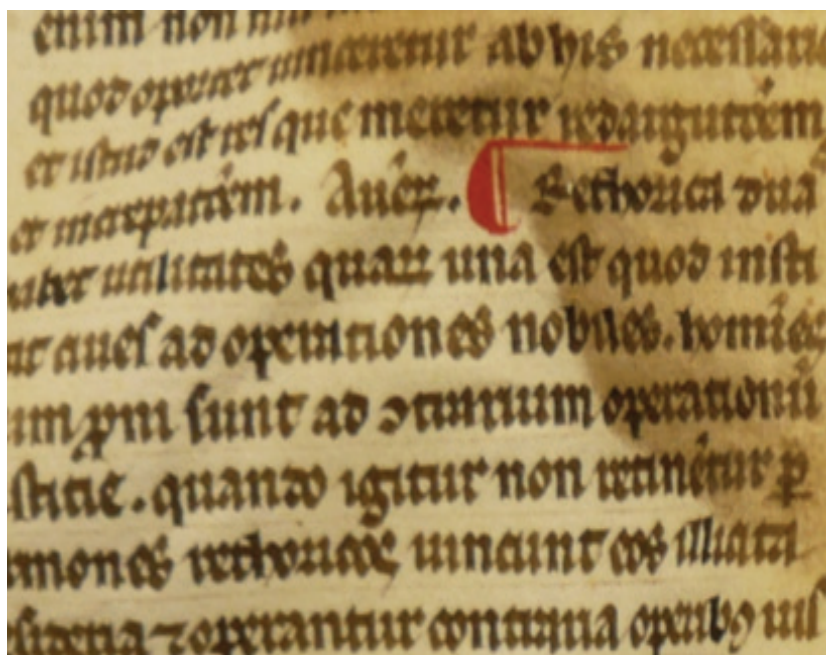 enim non
quod oportet uincerentur ab hys necessario
et istud est res que meretur redargutiõem
et increpatiõem. Auer̃. ¶ Rethorica dua
utilitates quaꝝ una est quod insti
ciues ad operationes nobiles. homiẽs
ꝓni sunt ad ↄtrarium operationũ
stitie. quando igitur non retinẽtur ꝑ
mones rethoricos uincunt eos illicita
sideria ⁊ operantur contraria operibꝰ uis